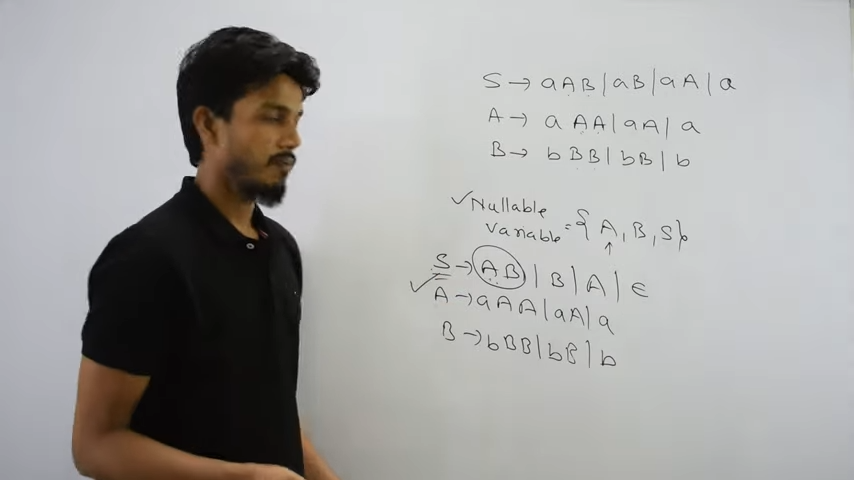 S → aAB | aB | aA | a
A → aAA | aA | a
B → bBB | bB | b
✓ Nullable
variable = { A, B, S }
↑
S → AB | B | A | ∈
✓ A → aAA | aA | a
B → bBB | bB | b